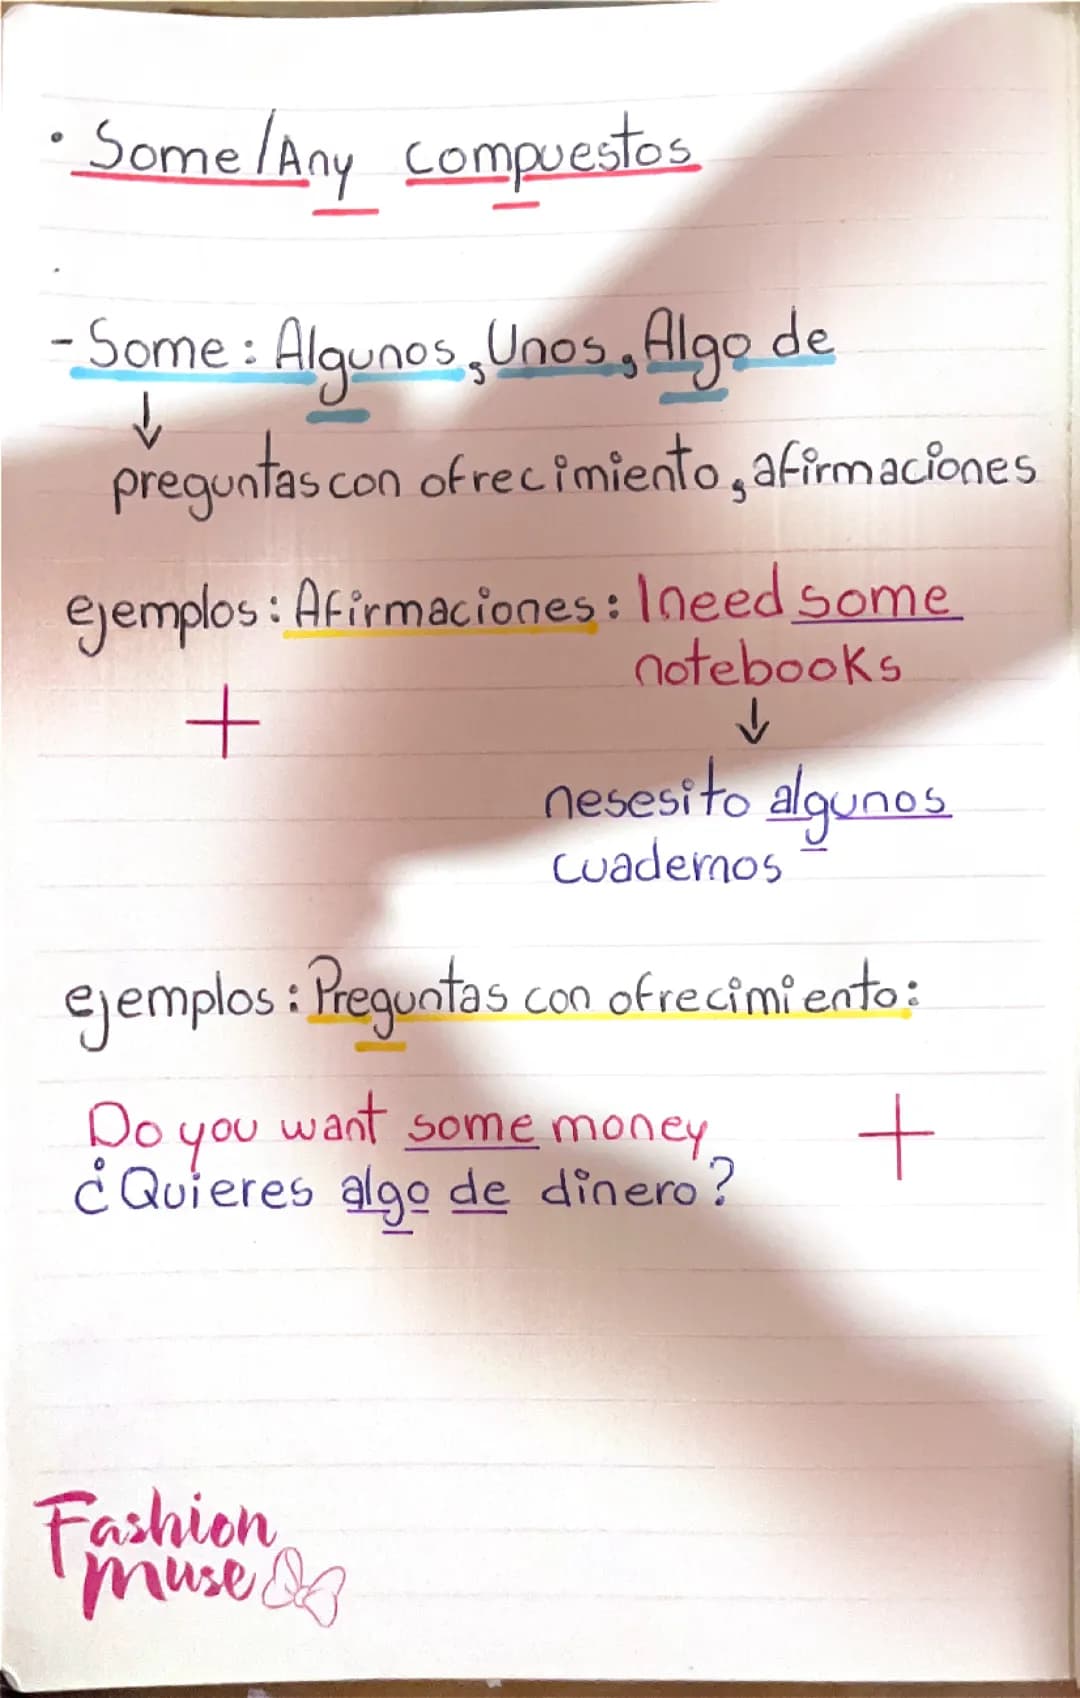 · Some/Any compuestos
- Some: Algunos, Unos, Algo de
↓
preguntas con ofrecimiento, afirmaciones
ejemplos: Afirmaciones: I need some
notebooks
+
↓
nesesito algunos
cuadernos
ejemplos: Preguntas con ofrecimiento:
Do you want some money
+
¿Quieres algo de dinero?
Fashion
muse